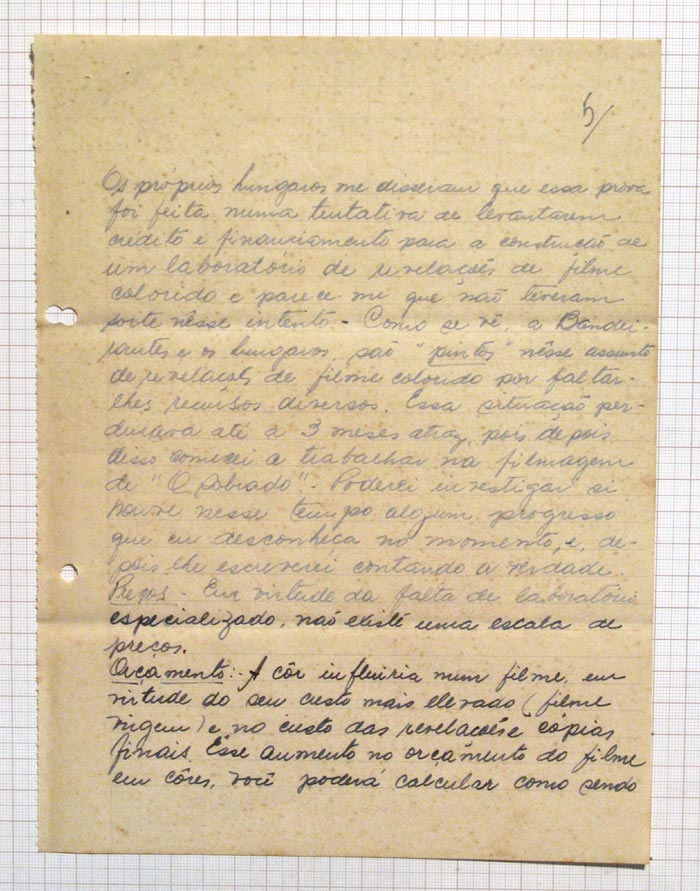 5/
Os próprios hungaros me disseram que essa prova
foi feita numa tentativa de levantarem
crédito e financiamento para a construção de
um laboratório de revelações de filme
colorido e parece-me que não tiveram
sorte nêsse intento. - Como se vê, a Bandei-
rantes e os hungaros, são "pintos" nêsse assunto
de revelações de filme colorido por faltar-
lhes recursos diversos. Essa situação per-
durava até a 3 meses atraz, pois depois
disso comecei a trabalhar na filmagem
de "O Sobrado". Poderei investigar si
houve nesse tempo algum progresso
que eu desconheça no momento, e, de-
pois lhe escreverei contando a verdade.
Preços - Em virtude da falta de laboratório
especializado, não existe uma escala de
preços.
Orçamento: A côr influiria num filme, em
virtude do seu custo mais elevado (filme
virgem) e no custo das revelações e cópias
finais. Êsse aumento no orçamento do filme
em côres, você poderá calcular como sendo